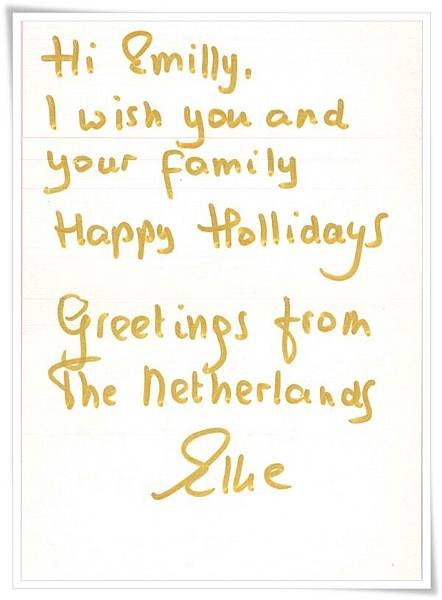 Hi Emilly,
I wish you and
your family
Happy Hollidays
Greetings from
The Netherlands
Elke